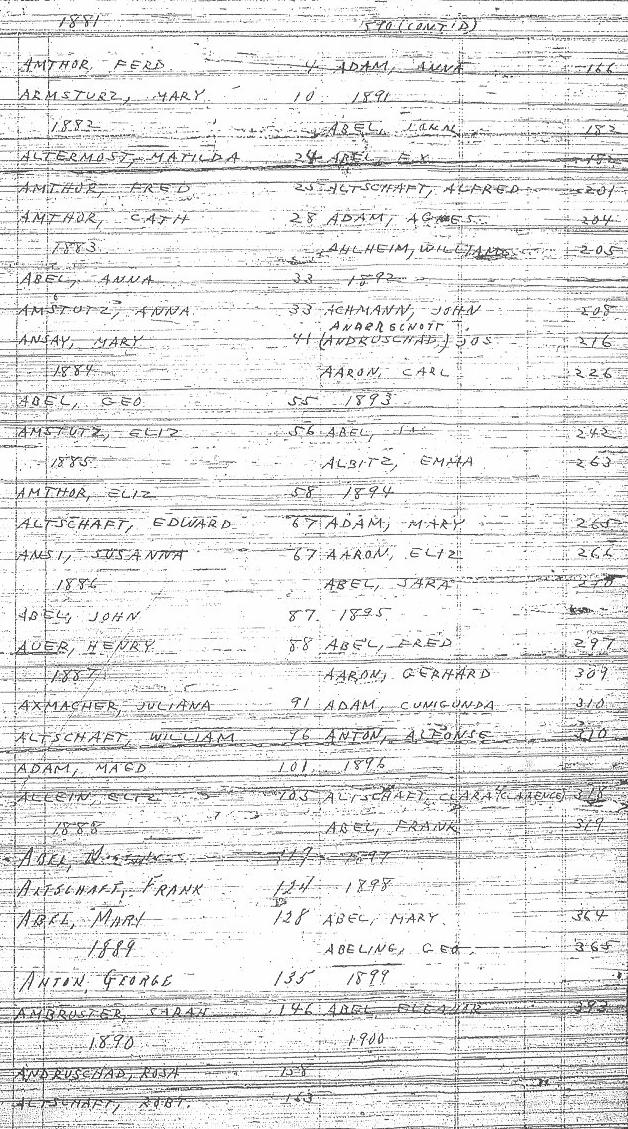 1881
AMTHOR, FERD 4
ARMSTURZ, MARY 10
1882
ALTERMOST, MATILDA 24
AMTHOR, FRED 25
AMTHOR, CATH 28
1883
ABEL, ANNA 33
AMSTUTZ, ANNA 33
ANSAY, MARY 41
1884
ABEL, GEO 55
AMSTUTZ, ELIZ 56
1885
AMTHOR, ELIZ 58
ALTSCHAFT, EDWARD 67
ANSI, SUSANNA 67
1886
ABEL, JOHN 87
AUER, HENRY 88
1887
AXMACHER, JULIANA 91
ALTSCHAFT, WILLIAM 96
ADAM, MAGD 101
ALLEIN, ELIZ 105
1888
ABEL, 119
ALTSCHAFT, FRANK 124
ABEL, MARY 128
1889
ANTON, GEORGE 135
AMBRUSTER, SARAH 146
1890
ANDRUSCHAD, ROSA 158
ALTSCHAFT, ROBT. 163
1890 (CONT'D)
ADAM, ANNA 166
1891
ABEL, 182
ABEL, 182
ALTSCHAFT, ALFRED 201
ADAM, AGNES 204
AHLHEIM, WILLIAM 205
1892
ACHMANN, JOHN 208
(ANDRUSCHAD) JOS 216
AARON, CARL 226
1893
ABEL, 242
ALBITZ, EMMA 263
1894
ADAM, MARY 265
AARON, ELIZ 266
ABEL, SARA
1895
ABEL, FRED 297
AARON, GERHARD 309
ADAM, CUNIGUNDA 310
ANTON, ALFONSE 310
1896
ALTSCHAFT, CLARA (CLARENCE) 318
ABEL, FRANK 319
1897
1898
ABEL, MARY 364
ABELING, GEO. 365
1899
ABEL, ELEANOR 393
1900